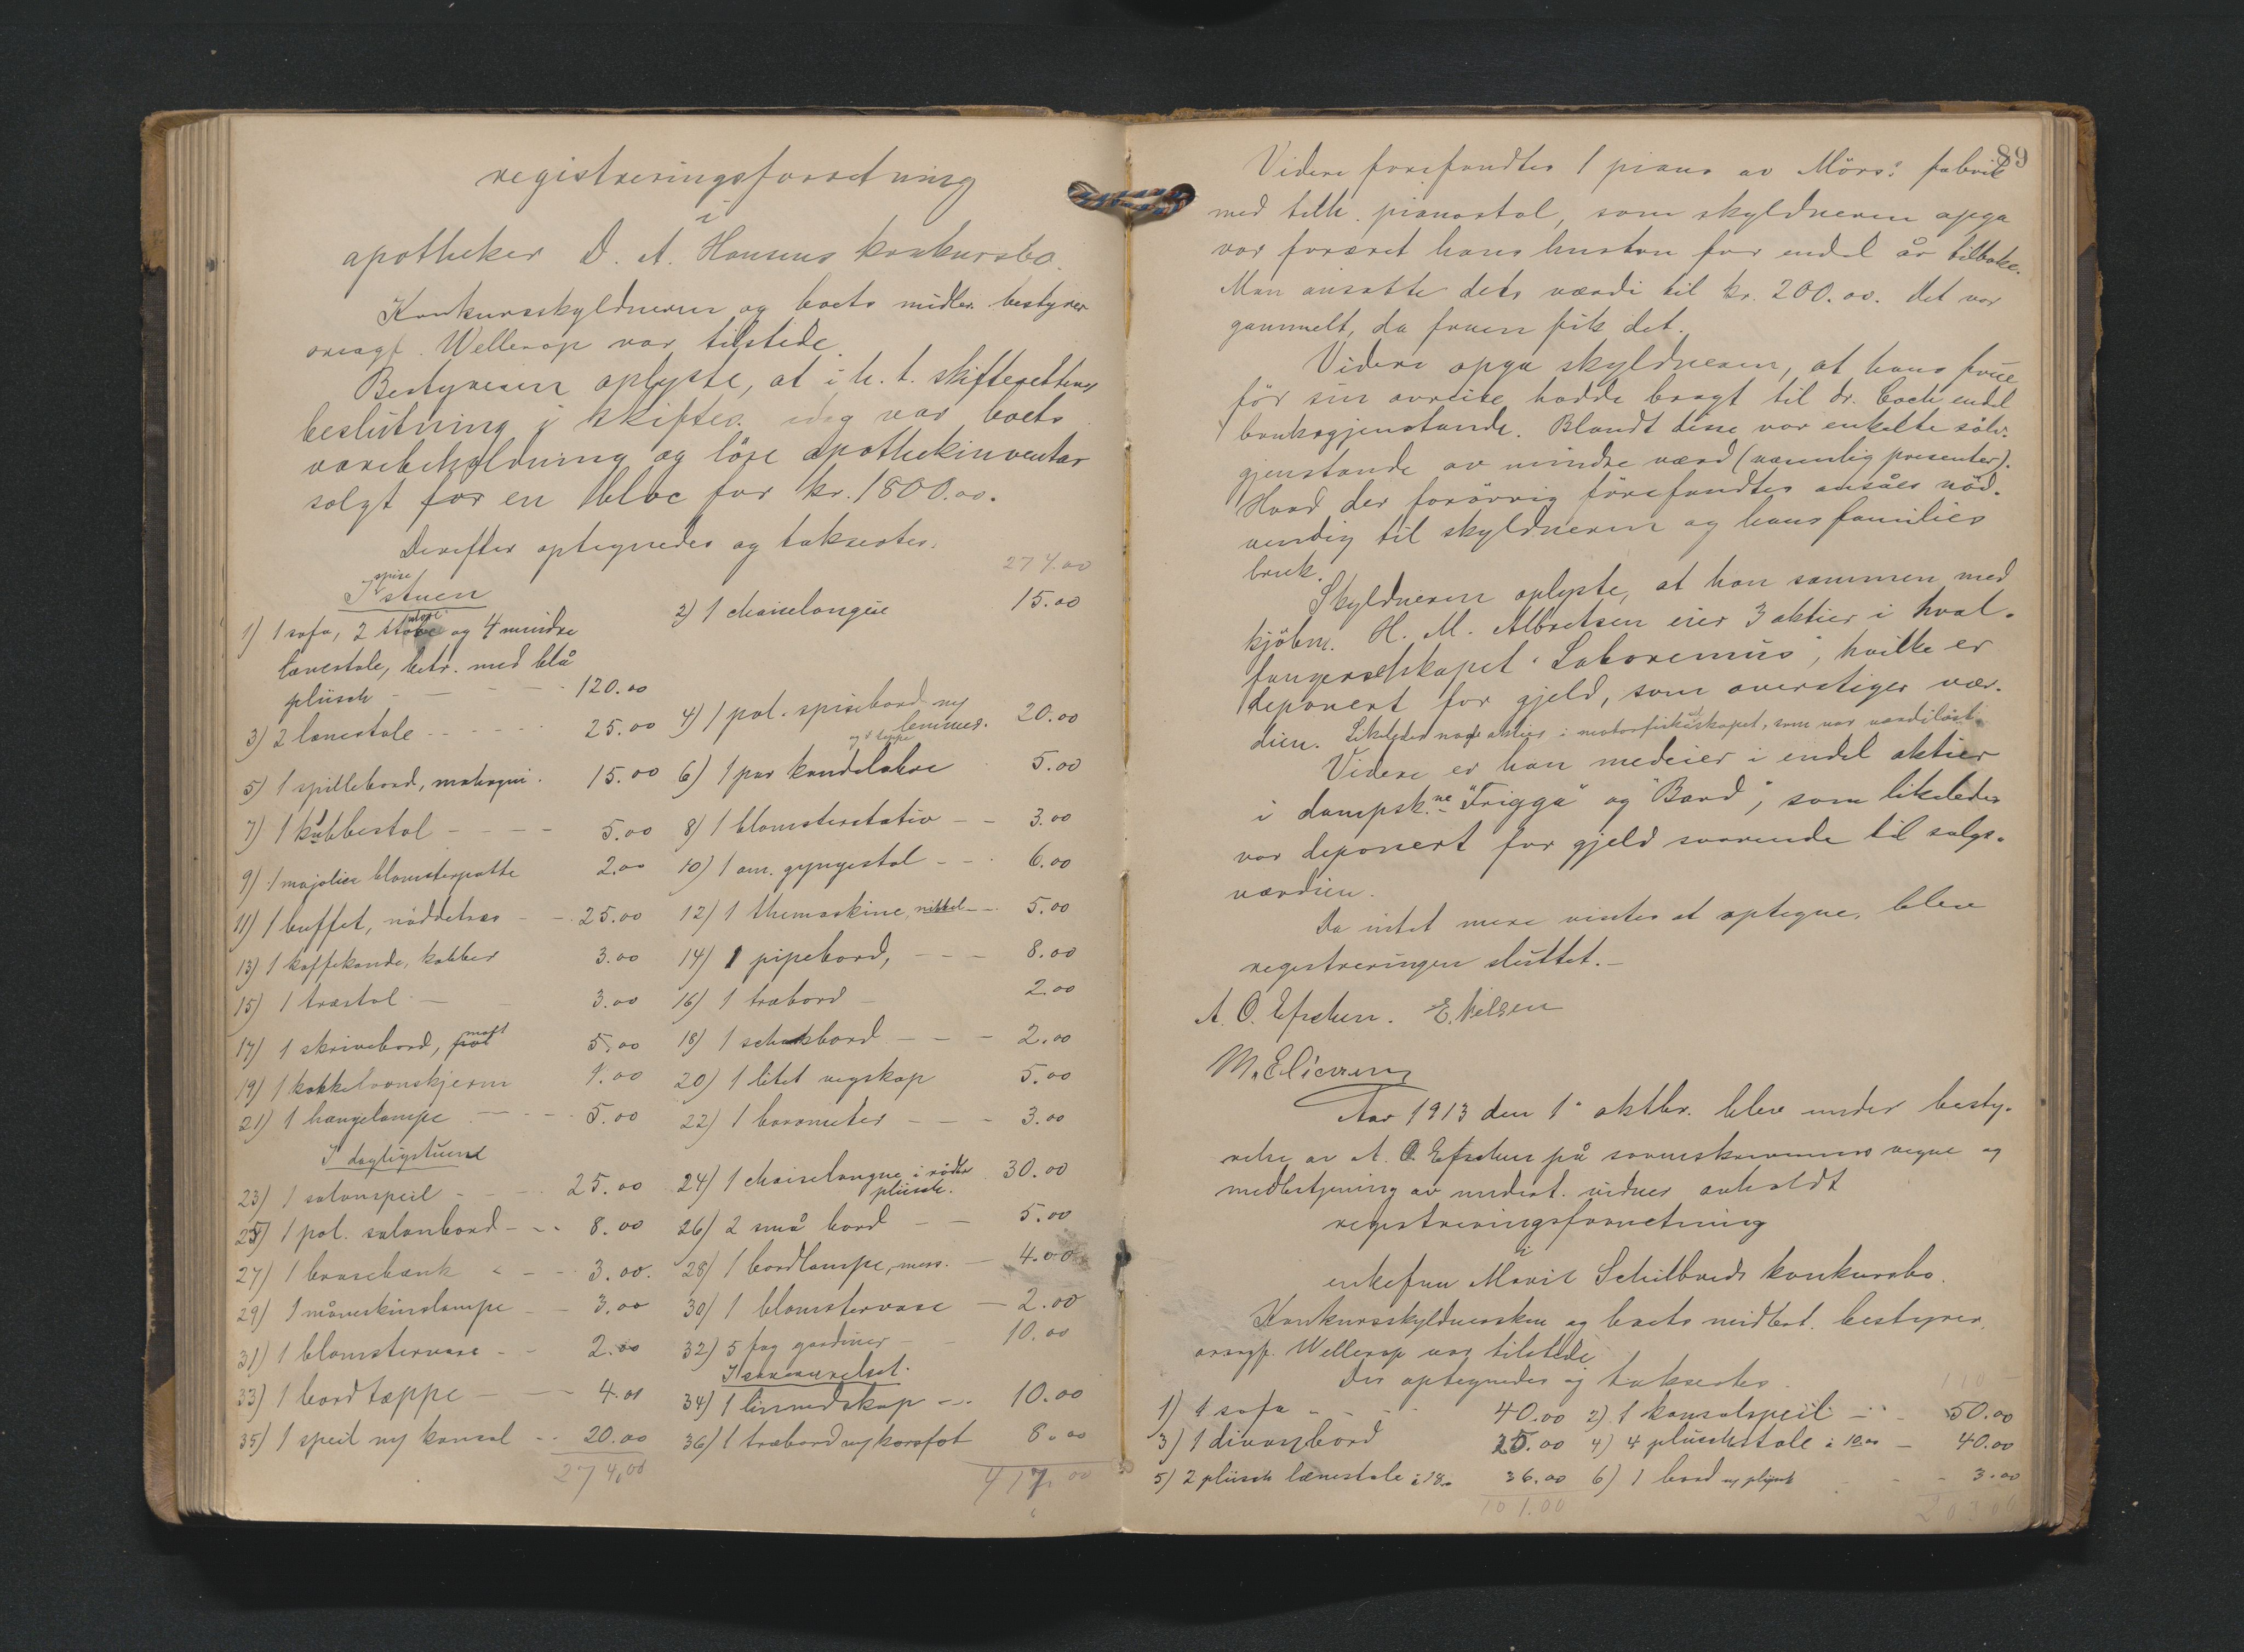 registreringsforretning
i
apotheker D. A. Hansens konkursbo.
Konkursskyldneren og boets midler. bestyrer
oresagf. Wellerop var tilstede.
Bestyreren oplyste, at i h. t. skifterettens
beslutning i skifter. idag var boets
varebeholdning og löse apothekinventar
solgt for en bloc for kr. 1800.00.
Derefter optegnedes og takseertes:
274.00
I spise stuen
1) 1 sofa, 2 store og 4 mindre
lænestole, betr. med blå
plüsch - - - - 120.00
2) 1 chaiselongue 15.00
3) 2 lænestole - - - - 25.00
4) 1 pol. spisebord m/ lemmer. og 1 teppe 20.00
5) 1 spillebord, mahogni. 15.00
6) 1 par kandelabre 5.00
7) 1 kubbestol - - - - 5.00
8) 1 blomsterstativ - - 3.00
9) 1 majolica blomsterpotte 2.00
10) 1 am. gyngestol - - 6.00
11) 1 buffet, nöddetræ - - 25.00
12) 1 themaskine, nikkel - - 5.00
13) 1 kaffekande, kobber 3.00
14) 1 pipebord, - - - 8.00
15) 1 træstol - 3.00
16) 1 træbord - 2.00
17) 1 skrivebord, malt 5.00
18) 1 schakbord - - - 2.00
19) 1 kakkelovnskjerm 1.00
20) 1 litet vegskap 5.00
21) 1 hængelampe - - - 5.00
22) 1 barometer - - - 3.00
I dagligstuene
23) 1 salonspeil - - - 25.00
24) 1 chaiselongue i röder plüsch. 30.00
25) 1 pol. salonbord - - - 8.00
26) 2 små bord - - 5.00
27) 1 brusebænk - - - 3.00.
28) 1 bordlampe, mess. - 4.00
29) 1 måneskinslampe - - 3.00
30) 1 blomstervase - 2.00
31) 1 blomstervase - - 2.00
32) 5 fag gardiner - - 10.00
33) 1 bordtæppe - - - 4.00
I soveværelset.
34) 1 linnedskap - - 10.00
35) 1 speil m/ konsol - - 20.00
36) 1 træbord m/ korsfot 8.00
274,00
417,00
89
Videre forefandtes 1 piano av Mörs: fabrik
med tilh. pianostol, som skyldneren opga
var foræret hans hustru for endel år tilbake.
Man ansatte dets værdi til kr. 200.00. Det var
gammelt, da fruen fik det.
Videre opga skyldneren, at hans frue
för sin avreise hadde bragt til dr. Coch endel
bruksgjenstande. Blandt disse var enkelte sölv-
gjenstande av mindre værd (væsentlig presenter).
Hvad der forövrig förefandtes ansåes nöd-
vendig til skyldneren og hans families
bruk.
Skyldneren oplyste, at han sammen med
kjöbm. H. M. Albretsen eier 3 aktier i hval-
fangerselskapet "Laboremus", hvilke er
deponert for gjeld, som overstiger vær-
dien. Likeledes nogle aktier i motorfiskeselskapet, som var værdilöst.
Videre er han medeier i endel aktier
i dampsk.ne "Frigga" og "Bard", som likeledes
var deponert for gjeld svarende til salgs-
værdien.
Da intet mere vistes at optegne, blev
registreringen sluttet. -
A. O. Efschen. E. Nelsen
Aar 1913 den 1ste oktbr. blev under besty-
relse av A. O. Efschen på sorenskriverens vegne og
medbetjening av undert. vidner avholdt
registreringsforretning
i
enkefru Marit Schilbreds konkursbo.
Konkursskyldnersken og boets midlert. bestyrer,
orsagf. Wellerop var tilstede.
Der optegnedes og taksertes.
110
1) 1 sofa - - - - 40.00
2) 1 konsolspeil - - - 50.00
3) 1 divanbord 25.00
4) 4 plüschstole à 10.00 - 40.00
5) 2 plüsch lænestole à 18. 36.00
6) 1 bord m/ plysch - - - 3.00
101.00
203.00